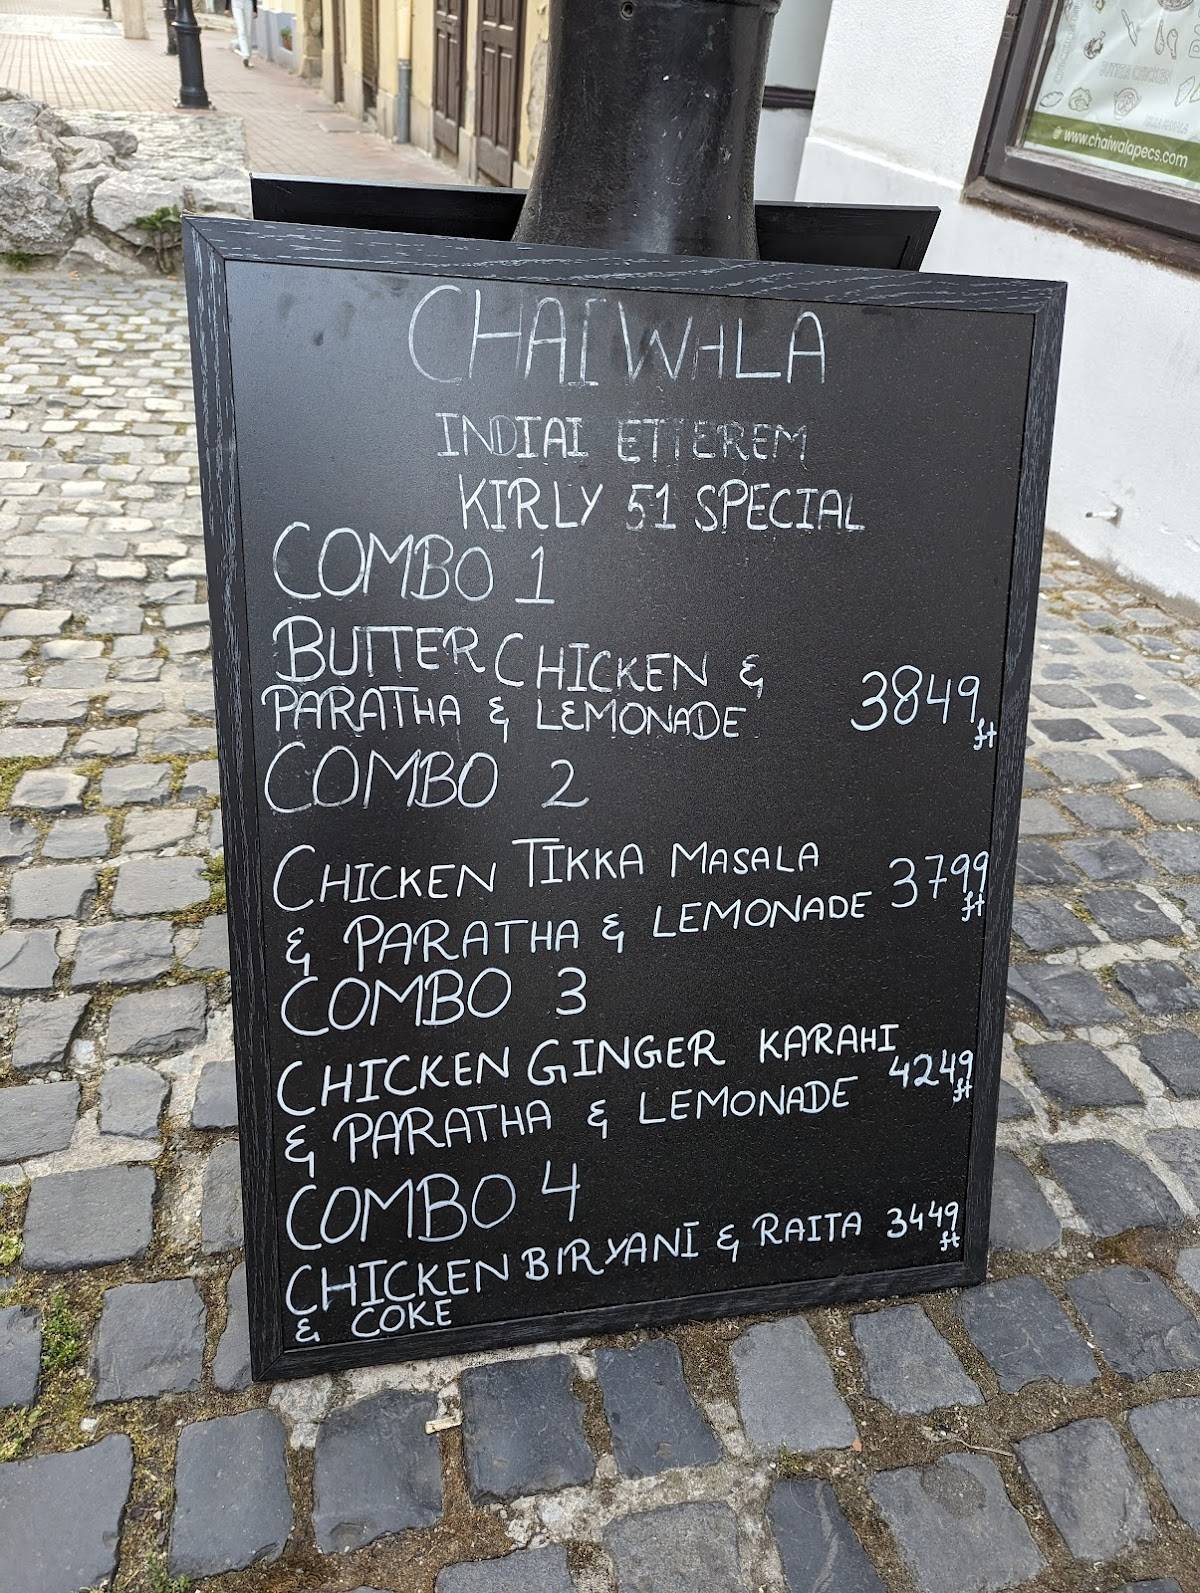 www.chaiwalapecs.com
CHAIWALA
INDIAI ETTEREM
KIRLY 51 SPECIAL
COMBO 1
BUTTER CHICKEN &
PARATHA & LEMONADE 3849 ft
COMBO 2
CHICKEN TIKKA MASALA
& PARATHA & LEMONADE 3799 ft
COMBO 3
CHICKEN GINGER KARAHI
& PARATHA & LEMONADE 4249 ft
COMBO 4
CHICKEN BIRYANI & RAITA 3449 ft
& COKE